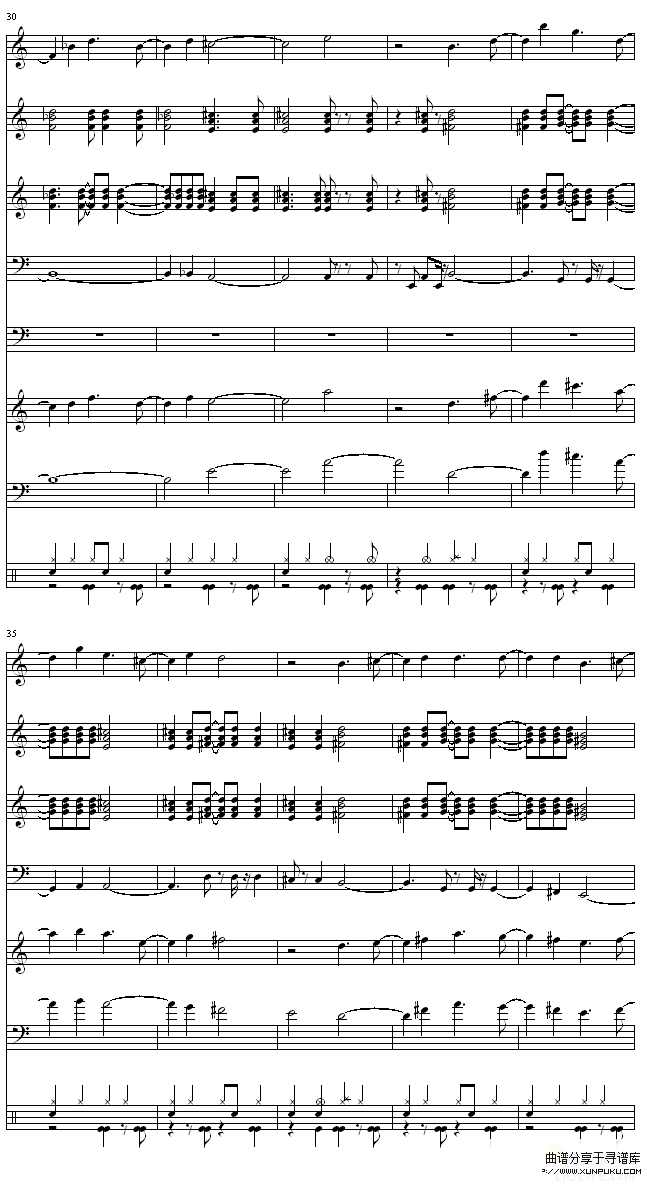 30
35
曲谱分享于寻谱库
HTTP://WWW.XUNPUKU.COM